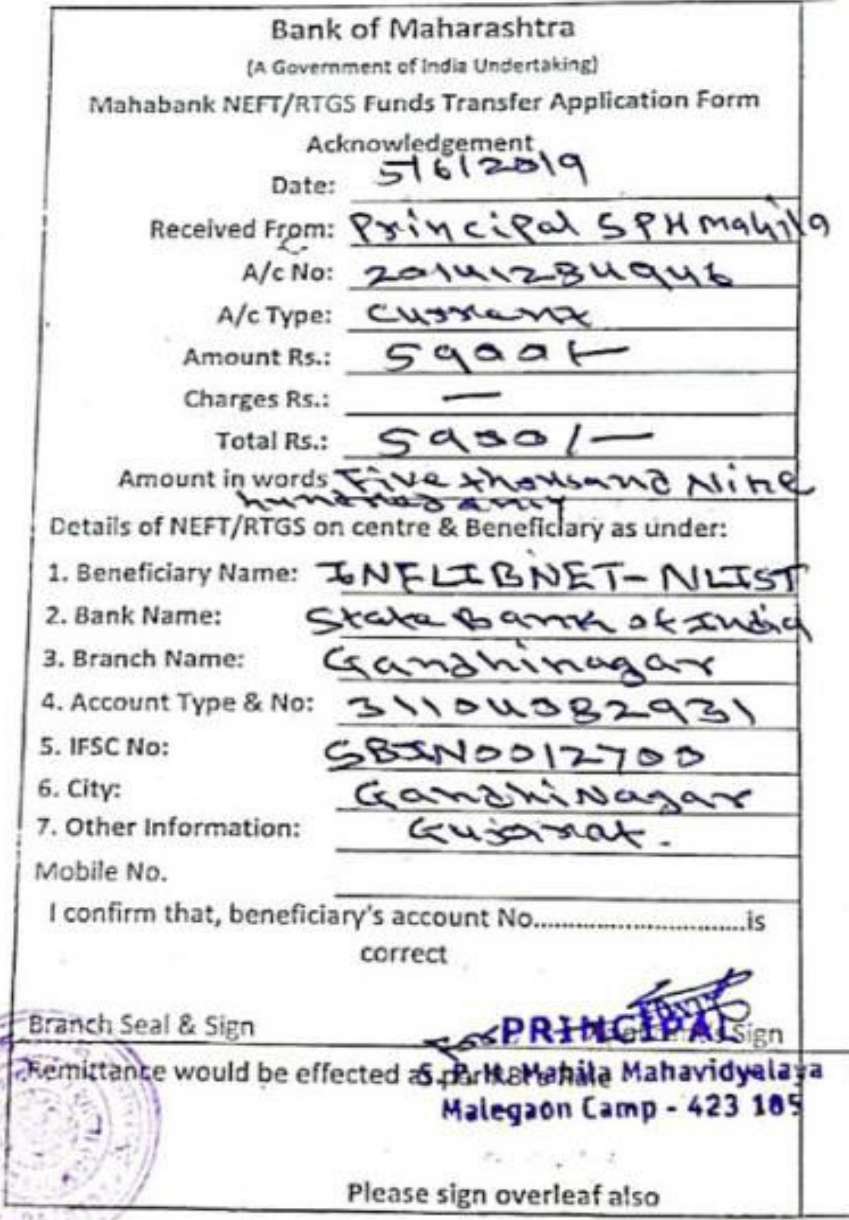 Bank of Maharashtra
(A Government of India Undertaking)
Mahabank NEFT/RTGS Funds Transfer Application Form
Acknowledgement
Date: 5/6/2019
Received From: Principal SPH Mahila
A/c No: 20141284946
A/c Type: Currant
Amount Rs.: 5900/-
Charges Rs.: —
Total Rs.: 5900/-
Amount in words Five thousand Nine
hundred only
Details of NEFT/RTGS on centre & Beneficiary as under:
1. Beneficiary Name: INFLIBNET-NLIST
2. Bank Name: State Bank of India
3. Branch Name: Gandhinagar
4. Account Type & No: 31104082931
5. IFSC No: SBIN0012700
6. City: GandhiNagar
7. Other Information: Gujarat.
Mobile No.
I confirm that, beneficiary's account No..............................is
correct
Branch Seal & Sign
PRINCIPAL Sign
Remittance would be effected as per
S. P. H. Mahila Mahavidyalaya
Malegaon Camp - 423 105
Please sign overleaf also